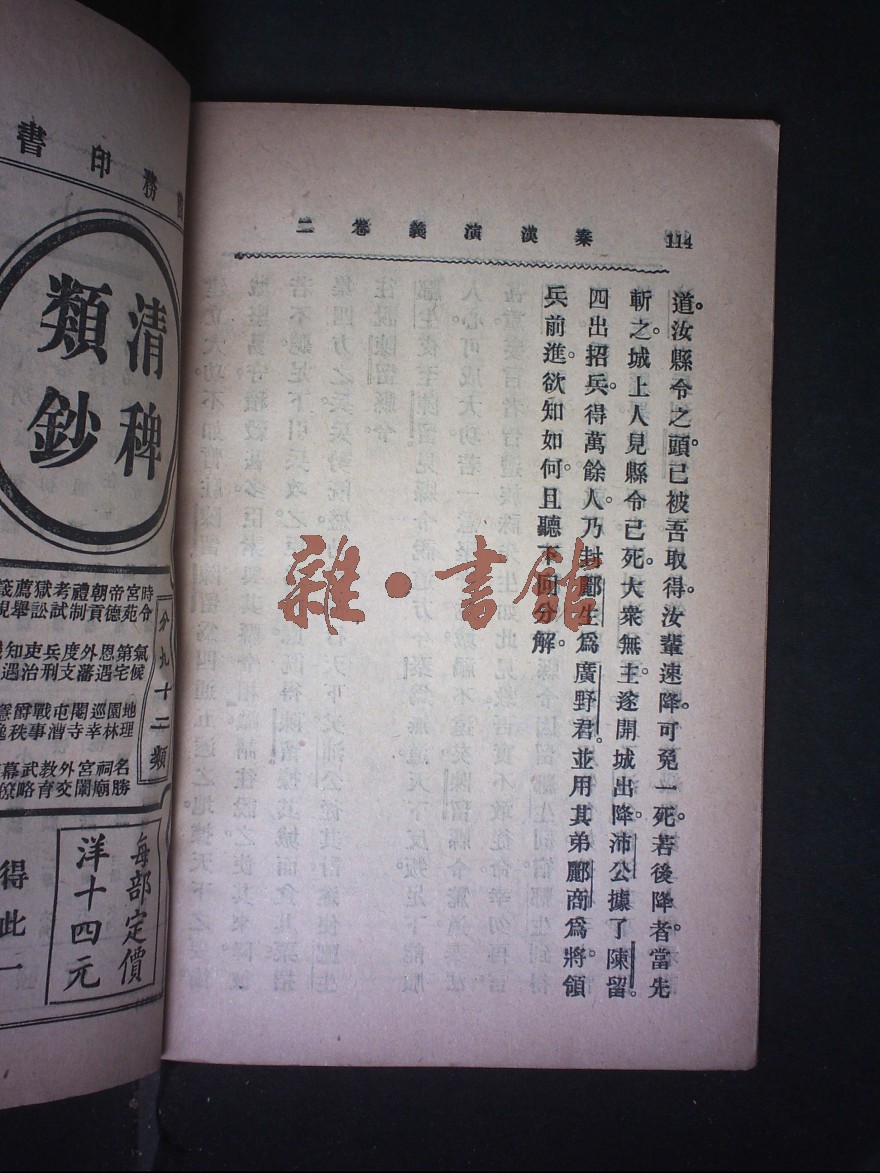 114
秦漢演義卷二
道。汝縣令之頭。已被吾取得。汝輩速降。可免一死。若後降者。當先
斬之。城上人見縣令已死。大衆無主。遂開城出降。沛公據了陳留。
四出招兵。得萬餘人。乃封酈生爲廣野君。並用其弟酈商爲將。領
兵前進。欲知如何。且聽下回分解。
雜·書館
務印書
清稗
類鈔
分九十二類
時令
宮苑
帝德
朝貢
禮制
考試
獄訟
薦舉
氣候
第宅
恩遇
外藩
度支
兵刑
吏治
知遇
地理
園林
巡幸
閹寺
屯漕
戰事
爵秩
名勝
祠廟
宮闈
外交
教育
武略
幕僚
每部定價
洋十四元
得此一